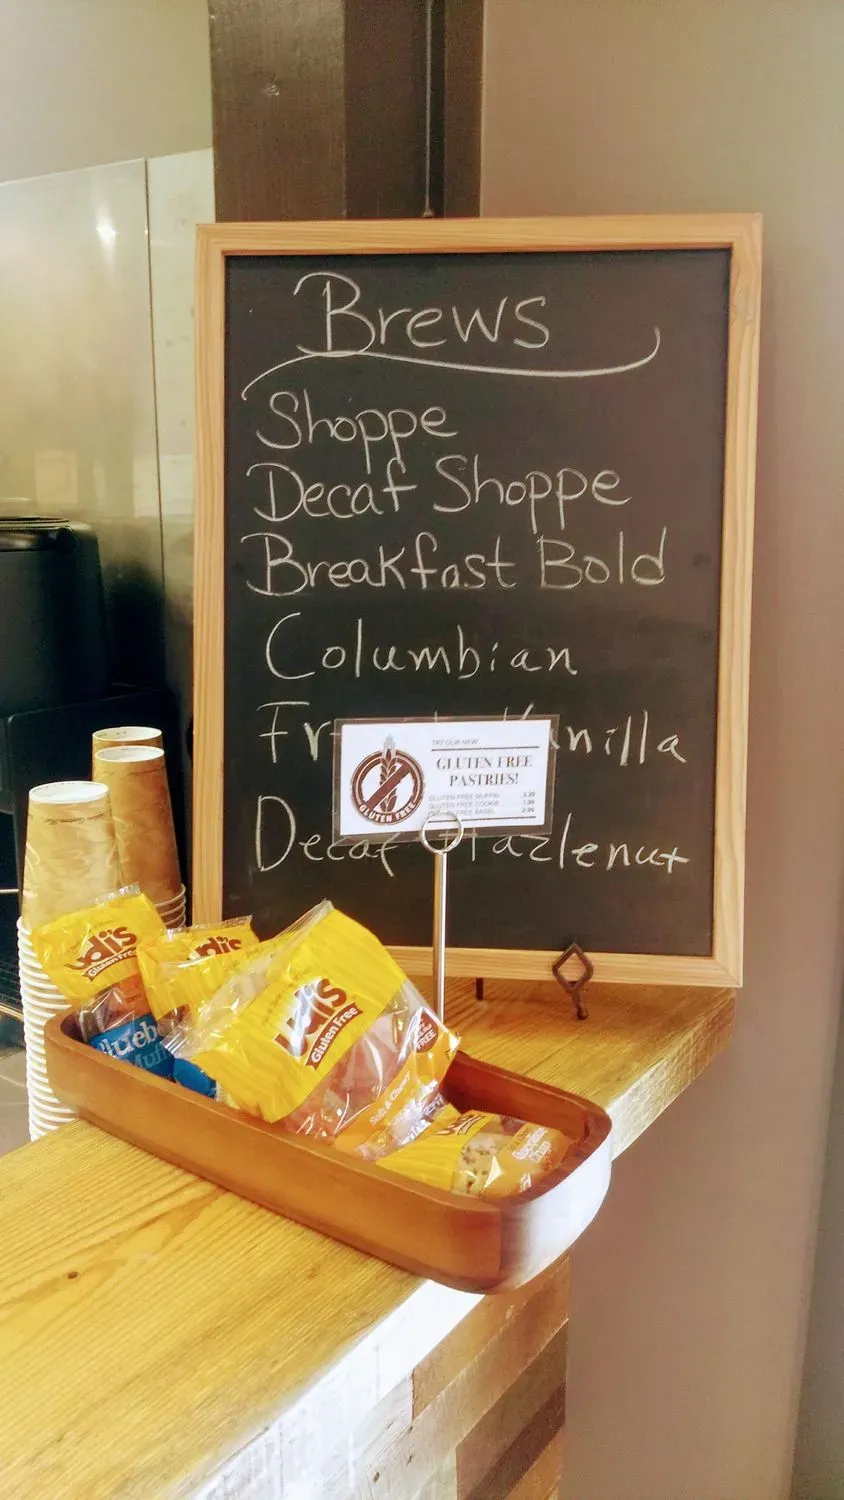 Brews
Shoppe
Decaf Shoppe
Breakfast Bold
Columbian
Vanilla
Decaf Hazlenut
TRY OUR NEW
GLUTEN FREE
PASTRIES!
GLUTEN FREE MUFFIN
GLUTEN FREE COOKIE 1.99
FREE BAGEL
GLUTEN FREE
udi's
Gluten Free
Muffin
udi's
udis
Gluten Free
FREE
Soft & Chewy